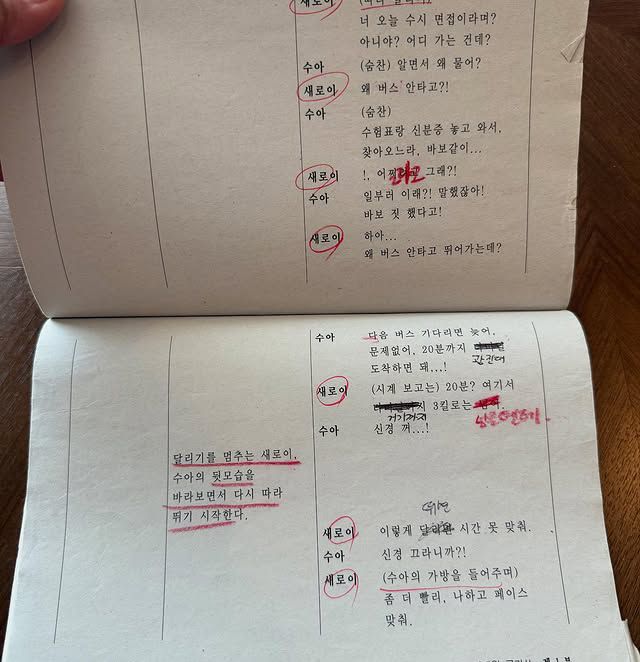 새로이
너 오늘 수시 면접이라며?
아니야? 어디 가는 건데?
수아 (숨찬) 알면서 왜 물어?
새로이 왜 버스 안타고?!
수아 (숨찬)
수험표랑 신분증 놓고 와서,
찾아오느라, 바보같이...
새로이 !, 그래?!
수아 일부러 이래?! 말했잖아!
바보 짓 했다고!
새로이 하아...
왜 버스 안타고 뛰어가는데?
수아 다음 버스 기다리면 늦어,
문제없어, 20분까지
관진대
도착하면 돼,...!
새로이 (시계 보고는) 20분? 여기서
3킬로는
거기까지
수아 신경 꺼...!
달리기를 멈추는 새로이,
수아의 뒷모습을
바라보면서 다시 따라
뛰기 시작한다.
뛰면
새로이 이렇게 시간 못 맞춰.
수아 신경 끄라니까?!
새로이 (수아의 가방을 들어주며)
좀 더 빨리, 나하고 페이스
맞춰.